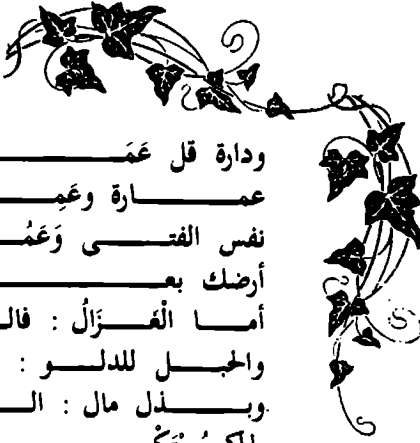 ودارة قل عَمَـ
عمـارة وعَمِـ
نفس الفتـى وَعَمُـ
أرضك بعـ
أمـا الْغَـزَالُ : فالـ
والحبـل للدلـو :
وبـذل مال : الـ